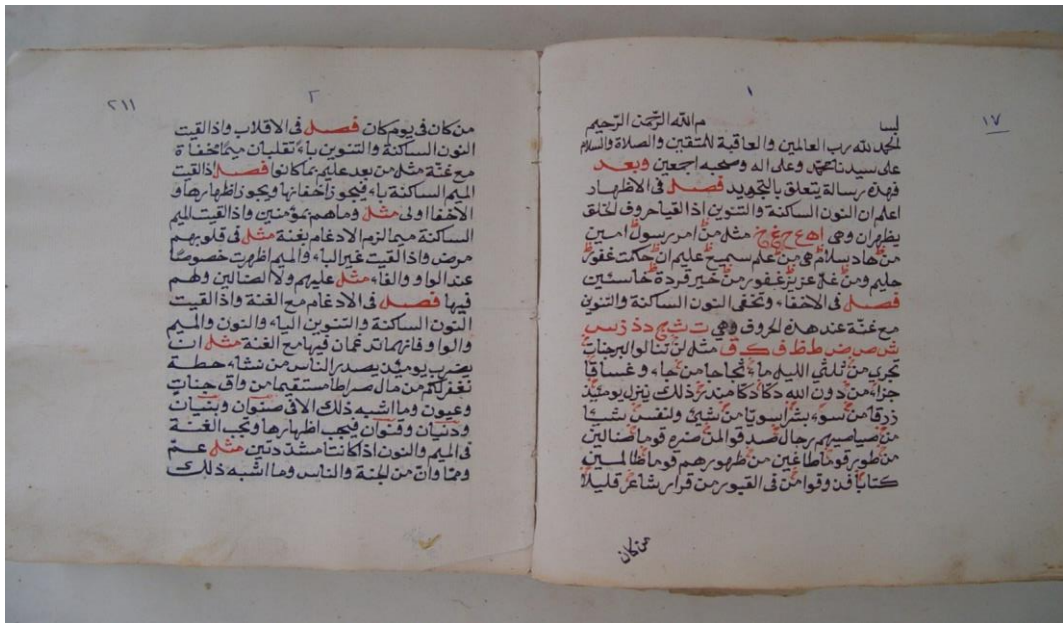 ١٧
١
بسم الله الرحمن الرحيم
الحمد لله رب العالمين والعاقبة للمتقين والصلاة والسلام
على سيدنا محمد وعلى اله وصحبه اجمعين وبعد
فهذه رسالة يتعلق بالتجويد فصل فى الاظهار
اعلم ان النون الساكنة والتنوين اذا لقيا حروف الحلق
يظهران وهى اهع حغخ مثله من امر رسول امين
من هاد سلام هى من علم سميع عليم ان حكمت غفور
حليم ومن غل عزيز غفور من خير قردة خاسئين
فصل فى الاخفاء وتخفى النون الساكنة والتنوين
مع غنة عند هذه الحروف وهى ت ث ج د ذ ز س
ش ص ض ط ظ ف ك ق مثله لن تنالوا البر جنات
تجرى من ثلثي الليل ماء ثجاجا من جاء وغساقا
جزاء من دون الله دكا دكا من ذلك ينزل يومئذ
زرقا من سوء بشرا سويا من شيئ ولنفس شيئا
من صياصيهم رجال صدقوا لمن ضره قوما ضالين
من طور قوما طاغين من ظهورهم قوما ظالمين
كتابا فذوقوا من فى القبور من قرار شاعر قليلا
من كان
٢١١
٢
من كان فى يوم كان فصل فى الاقلاب واذا لقيت
النون الساكنة والتنوين باء تقلبان ميما مخفاة
مع غنة مثله من بعد عليم بما كانوا فصل اذا لقيت
الميم الساكنة باء فيجوز اخفائها ويجوز اظهارها و
الاخفا اولى مثله وما هم بمؤمنين واذا لقيت الميم
الساكنة ميما الزم الادغام بغنة مثله فى قلوبهم
مرض واذا لقيت غير الباء والميم اظهرت خصوصا
عند الواو والفاء مثله عليهم ولا الضالين وهم
فيها فصل فى الادغام مع الغنة واذا لقيت
النون الساكنة والتنوين الياء والنون والميم
والواو فانهما تدغمان فيها مع الغنة مثله ان
يضرب يومئذ يصدر الناس من نشاء حطة
نغفر لكم من مال صراطا مستقيما من واق جنات
وعيون وما اشبه ذلك الا فى صنوان وبنيان
ودنيان وقنوان فيجب اظهارها وتجب الغنة
فى الميم والنون اذا كانتا مشددتين مثله عم
ومما وان من الجنة والناس وما اشبه ذلك